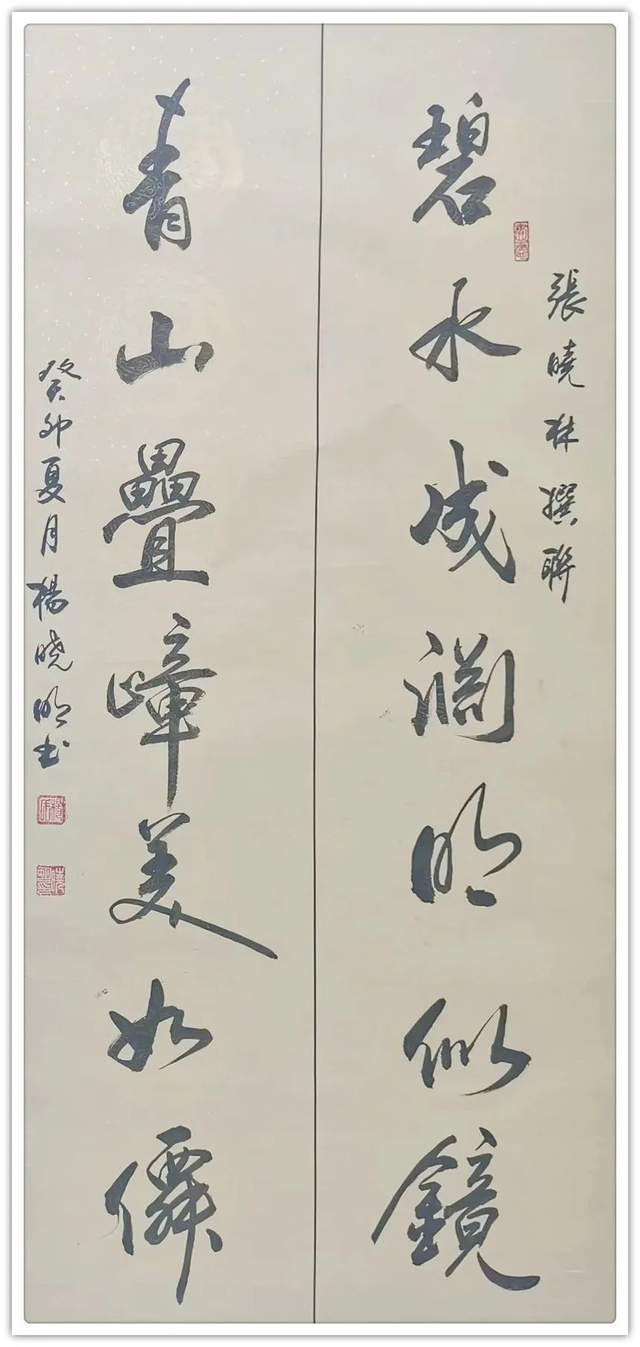 張曉林撰聯
碧水成淵明似鏡
青山疊嶂美如僊
癸卯夏月楊曉明书